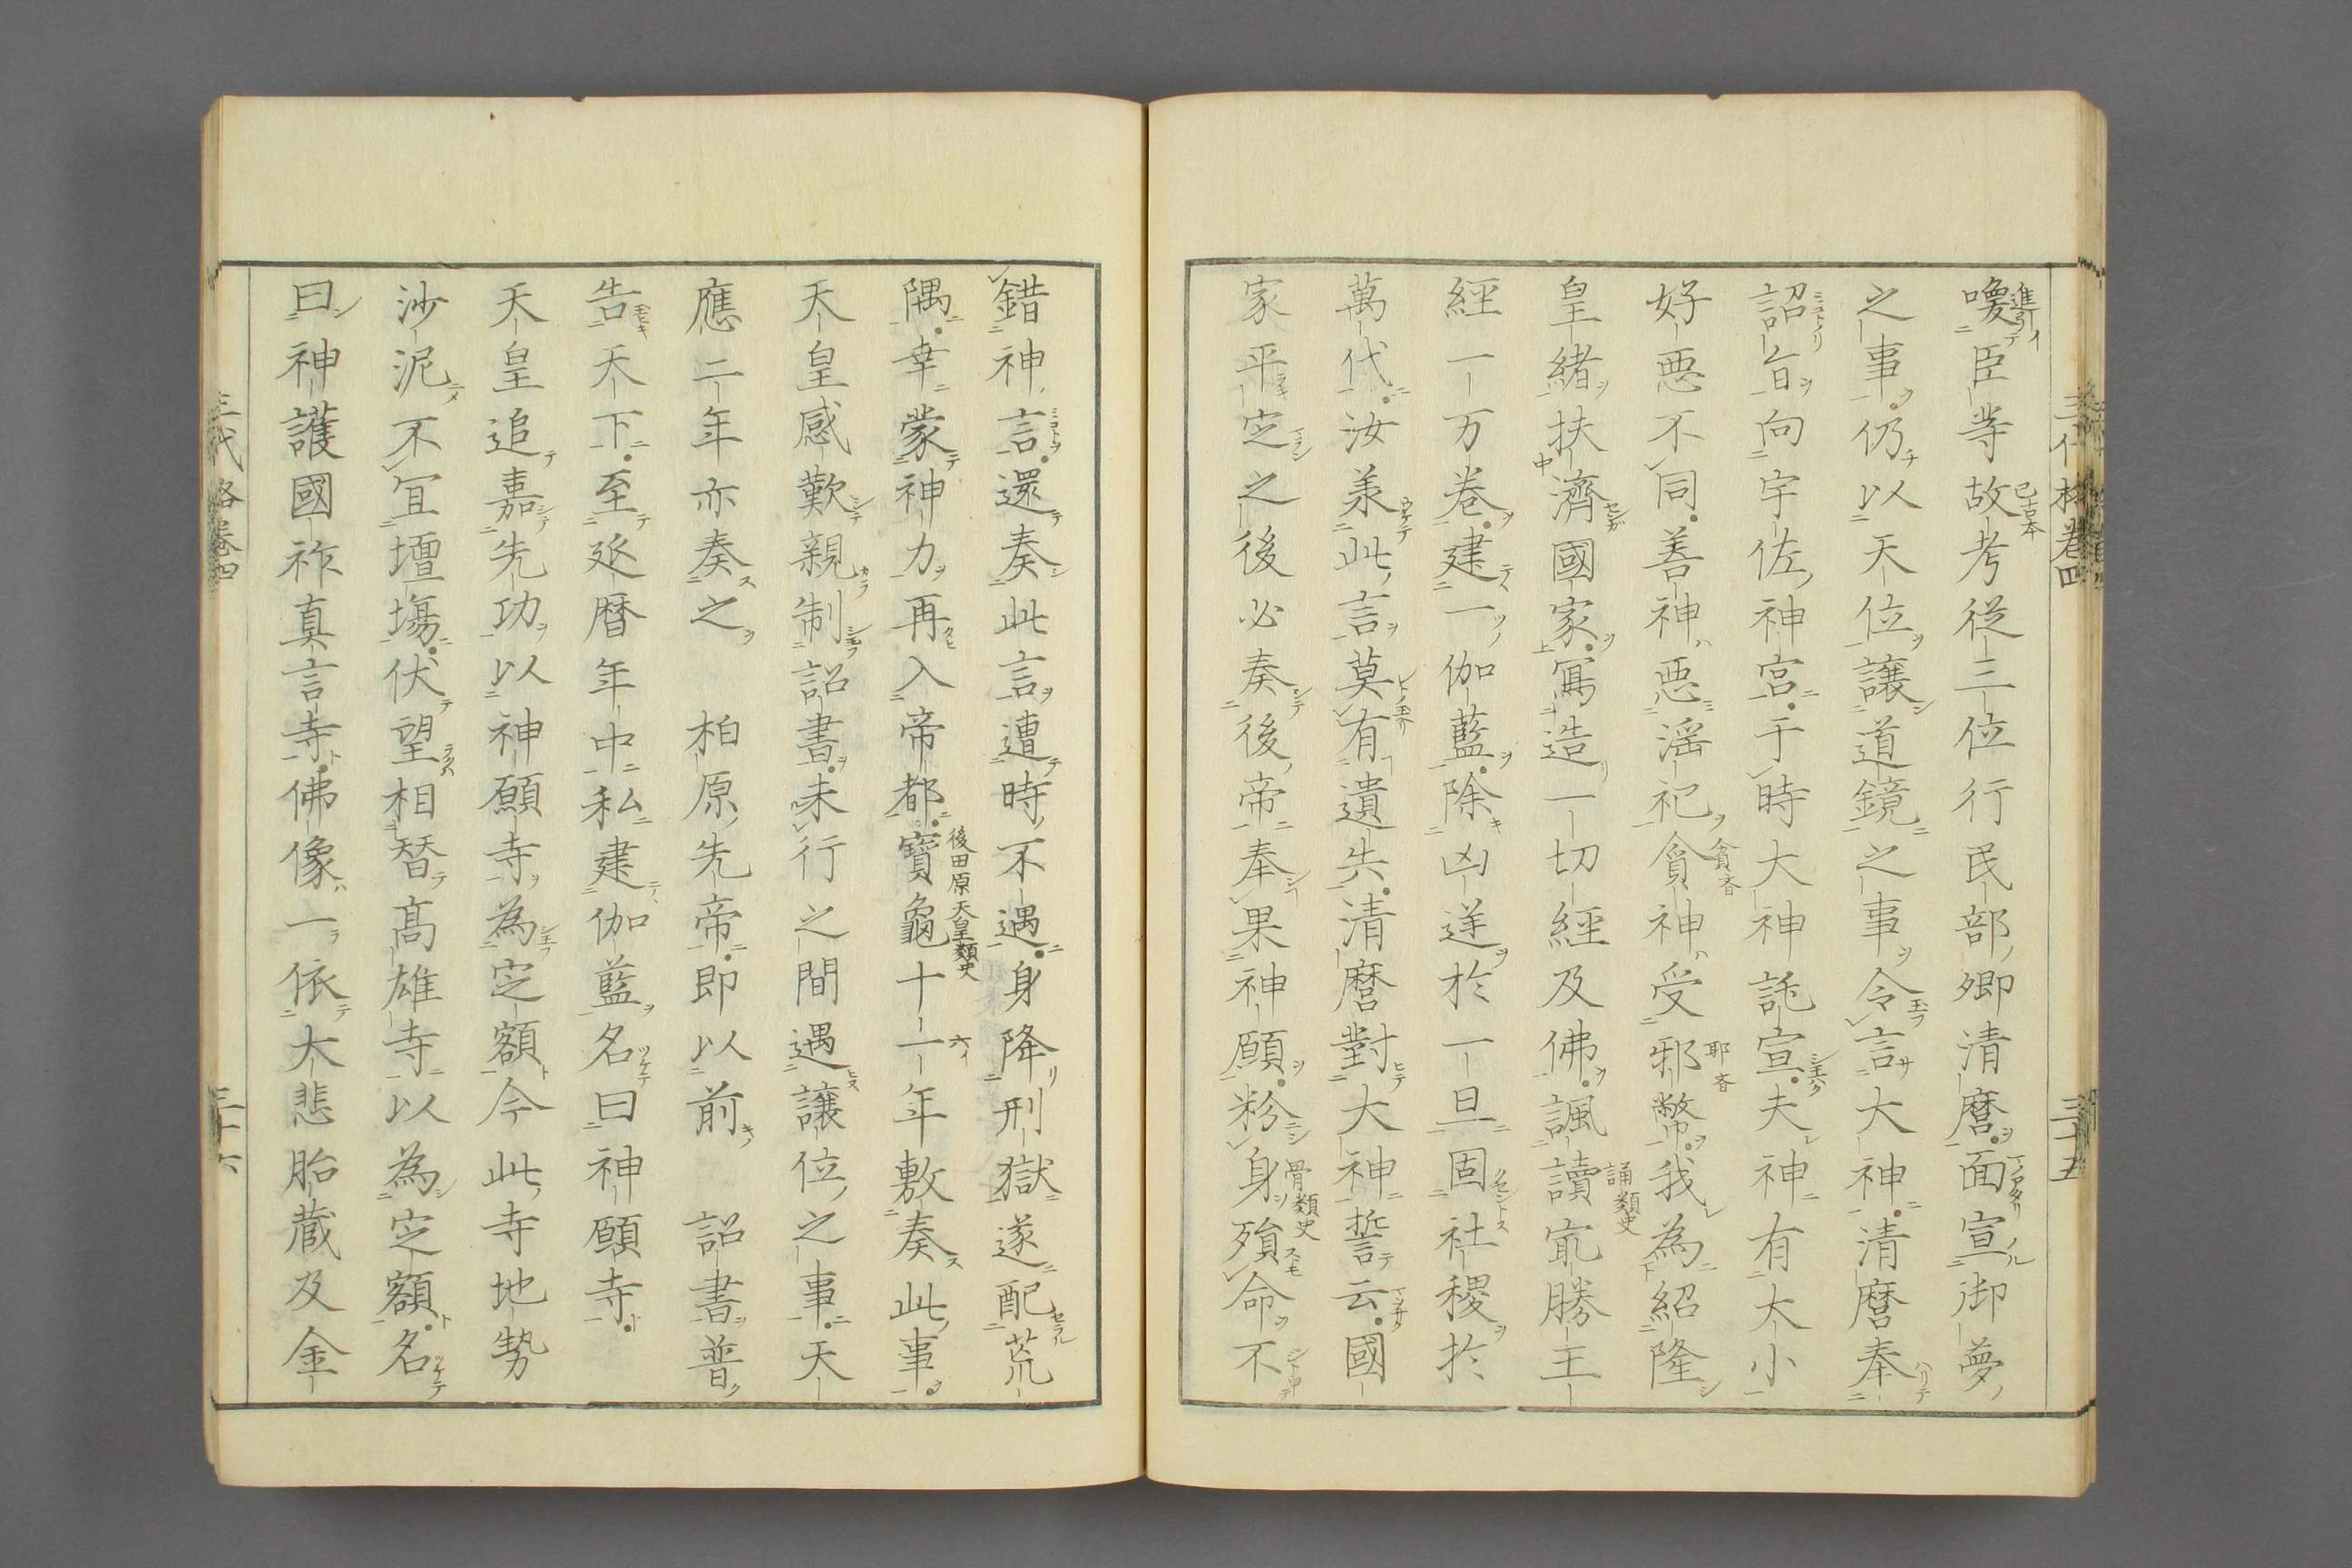 喚臣䓁故考従三位行民部卿清麿面宣御夢
之事仍以天位譲道鏡之事令言大神清麿奉
詔旨向宇佐神宮于時大神託宣夫神有大小
好悪不同善神悪淫祀貪神受邪幣我為紹隆
皇緒扶濟國家寫造一切經及佛諷讀㝡勝王
經一万卷建一伽藍除凶逆於一旦固社稷於
萬代汝羕此言莫有遺失清麿對大神誓云國
家平定之後必奏後帝奉果神願粉身殞命不
錯神言還奏此言遭時不遇身降刑獄遂配荒
隅幸蒙神力再入帝都寶龜十一年敷奏此事
天皇感歎親制詔書未行之間遇譲位之事天
應二年亦奏之 柏原先帝即以前 詔書普
告天下至延暦年中私建伽藍名曰神願寺
天皇追嘉先功以神願寺為定額今此寺地勢
沙泥不宜壇塲伏望相替髙雄寺以為定額名
曰神護國祚真言寺佛像一依大悲胎蔵及金
三代格卷四
三十六